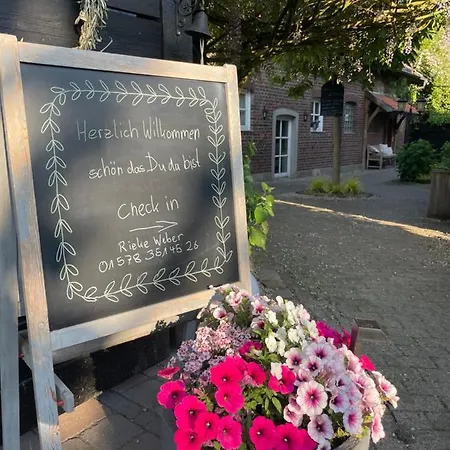 Herzlich Willkommen
schön das Du da bist
Check in
Rieke Weber
01578 3514526